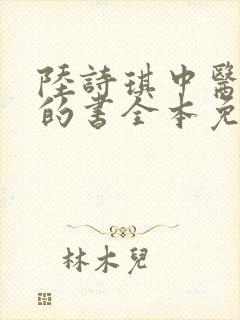 陸詩琪中醫
的書全本免
林木兒